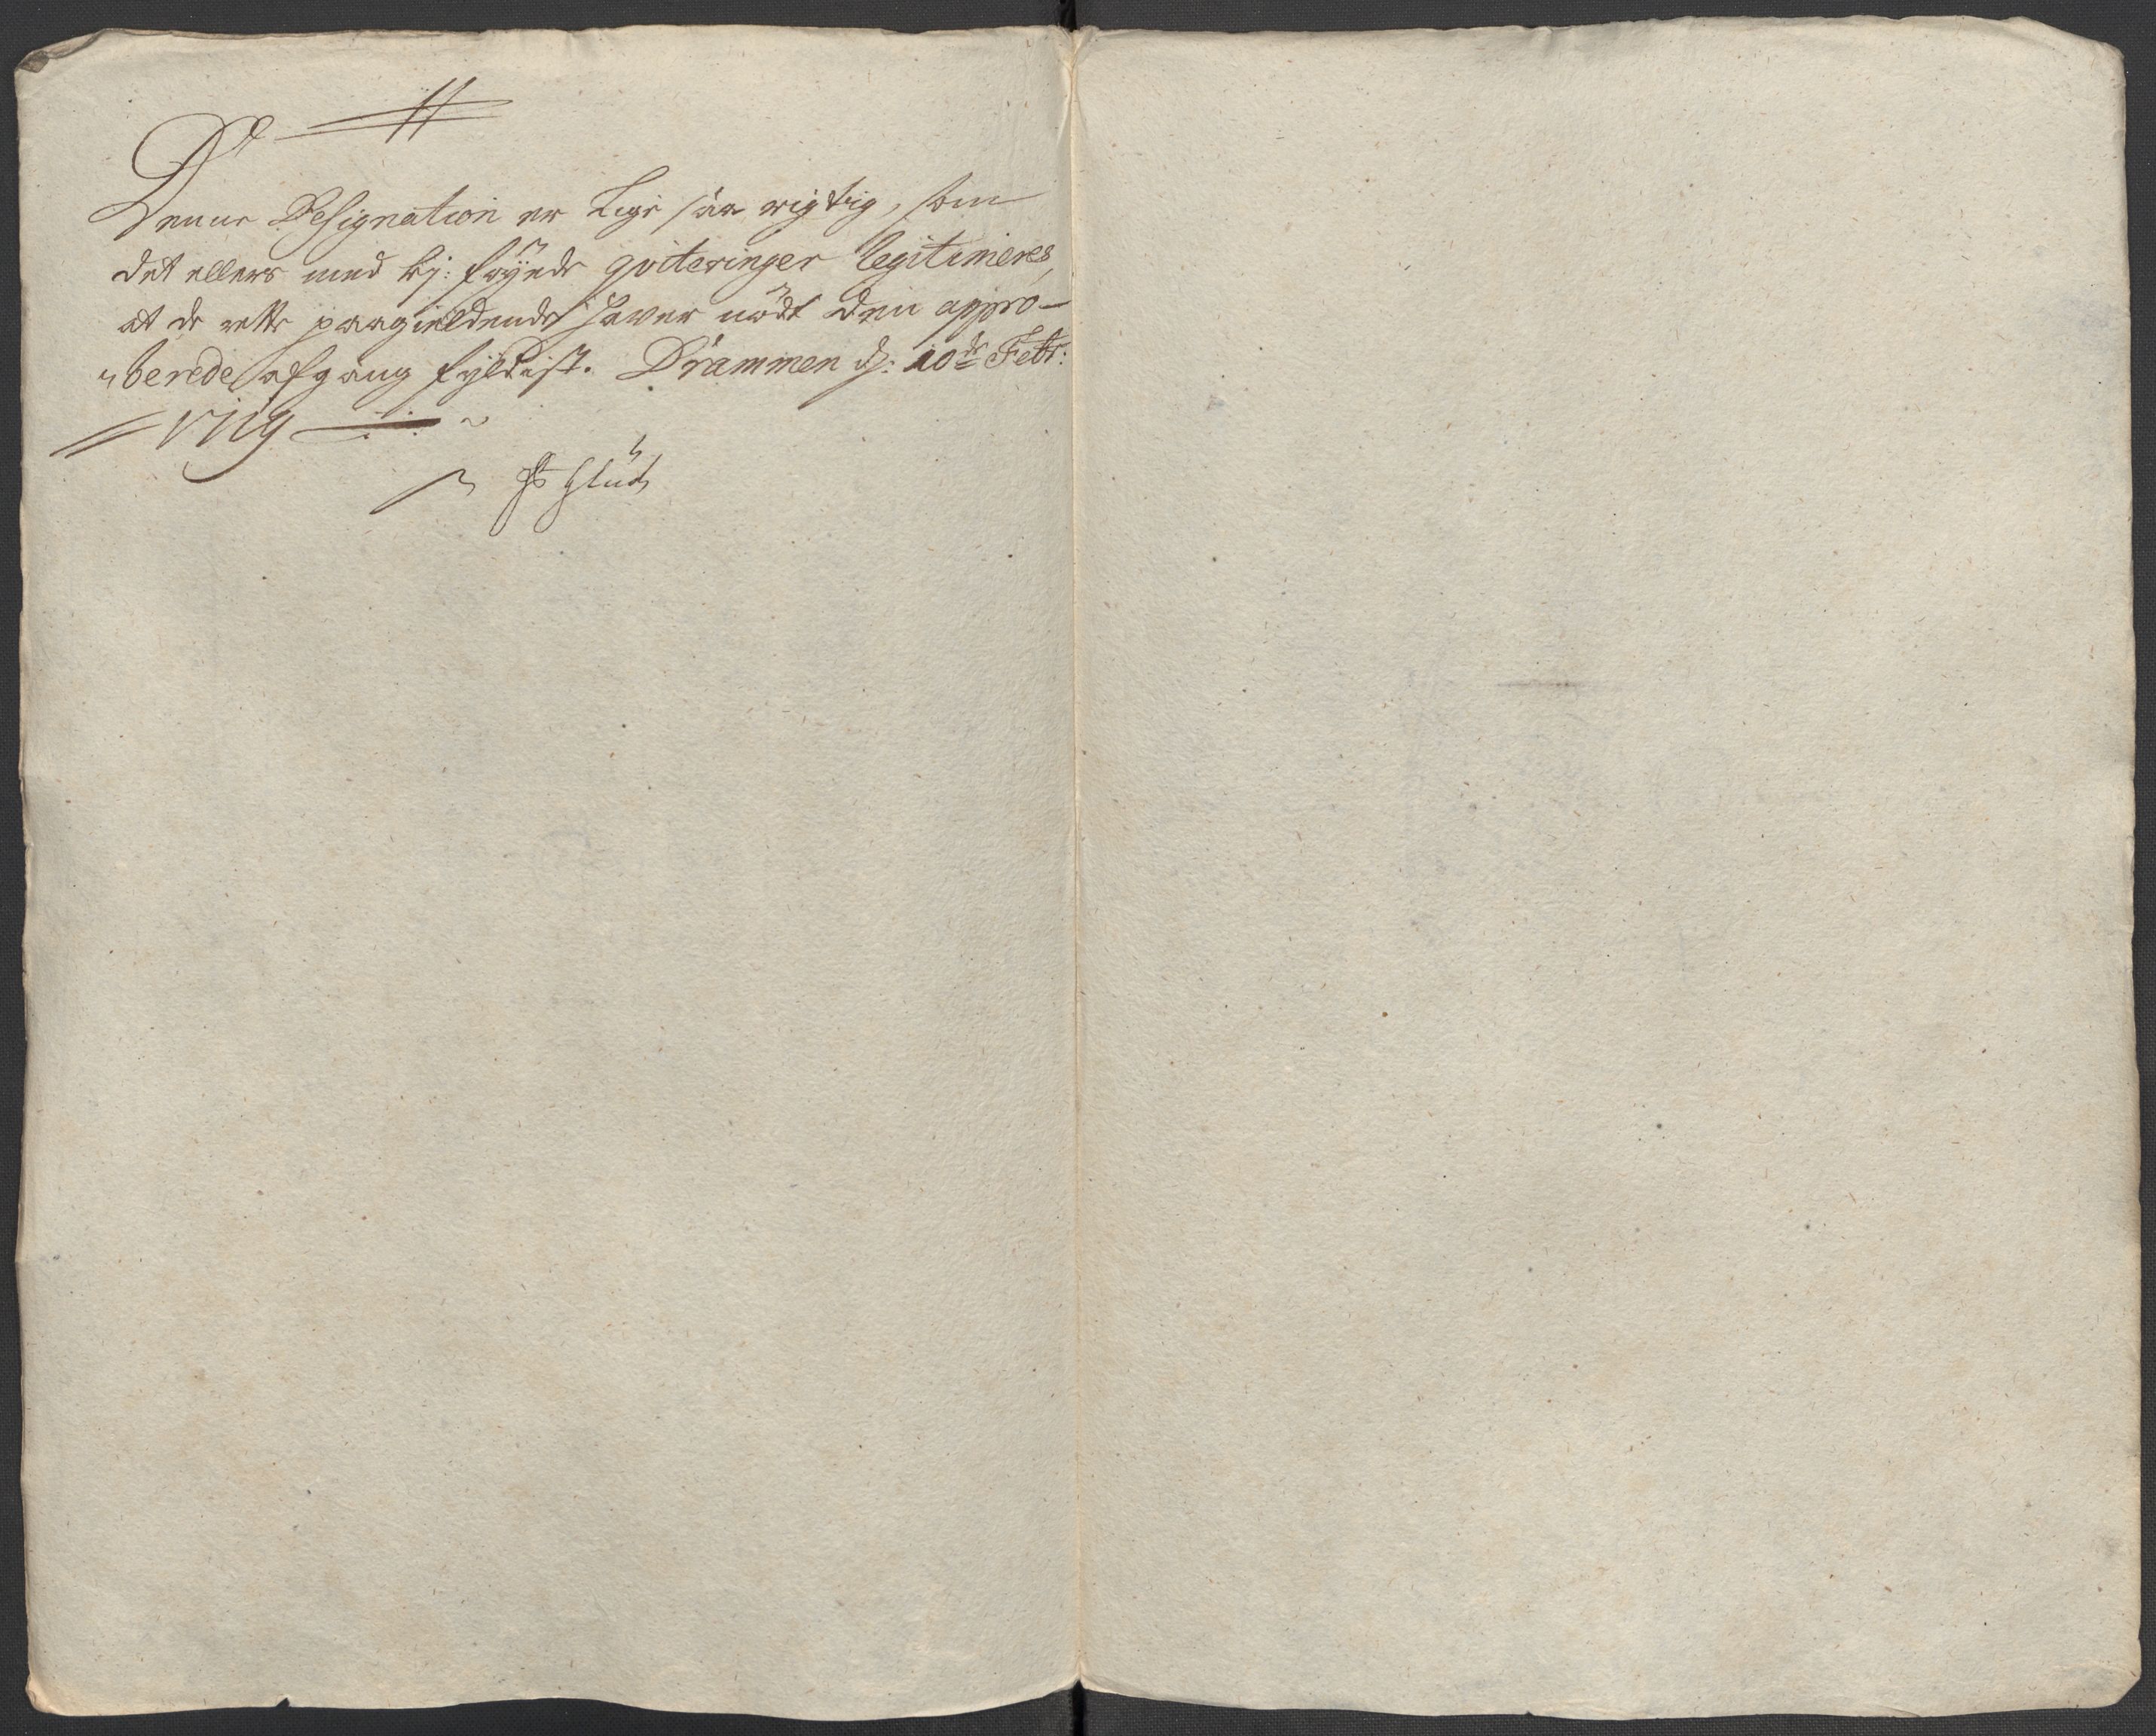 Denne Designation er Lige saa rigtig, som
det ellers med bij: føyede qviteringer legitimeres,
at de rette paagieldende haver nødt den appro-
berede afgang fyldist. Drammen d: 10de Febr:
1719
Glud